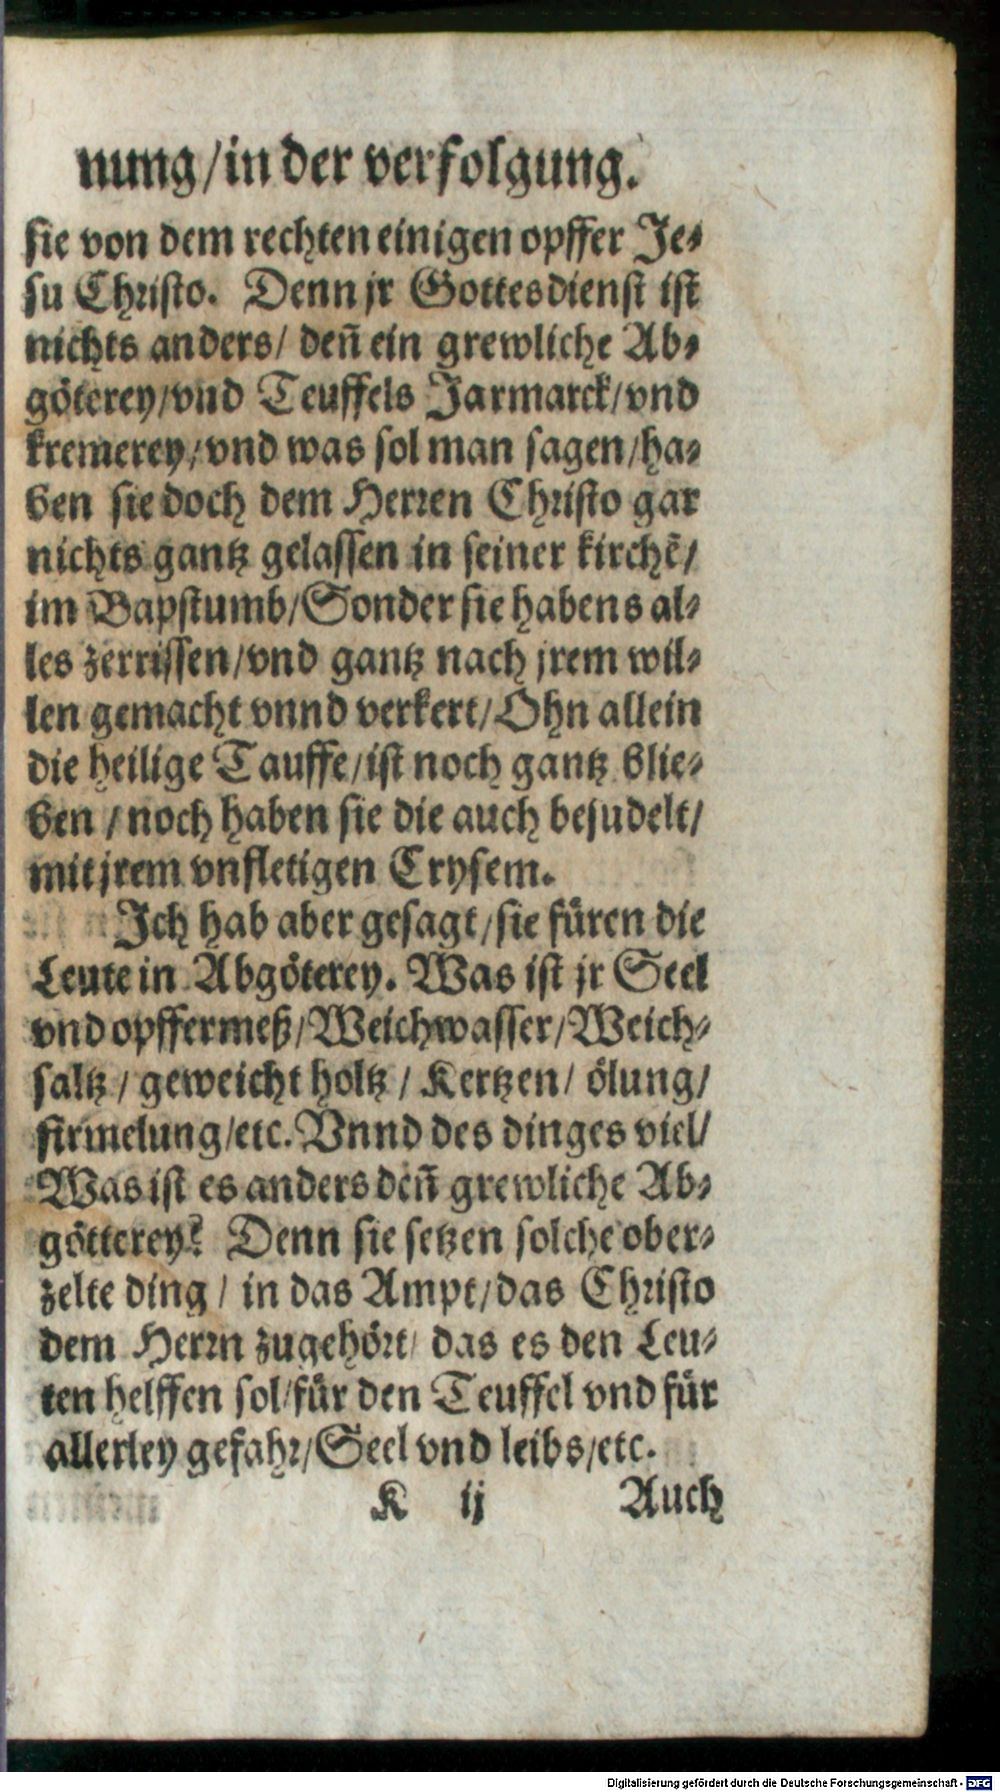 nung/in der verfolgung.
sie von dem rechten einigen opffer Je⸗
su Christo. Denn jr Gottesdienst ist
nichts anders/ deñ ein grewliche Ab⸗
göterey/vnd Teuffels Jarmarck/vnd
kremerey/vnd was sol man sagen/ha⸗
ben sie doch dem Herren Christo gar
nichts gantz gelassen in seiner kirchē/
im Bapstumb/Sonder sie habens al⸗
les zerrissen/vnd gantz nach jrem wil⸗
len gemacht vnnd verkert/Ohn allein
die heilige Tauffe/ist noch gantz blie⸗
ben / noch haben sie die auch besudelt/
mit jrem vnfletigen Crysem.
Ich hab aber gesagt/sie füren die
Leute in Abgöterey. Was ist jr Seel
vnd opffermeß/Weichwasser/Weich⸗
saltz / geweicht holtz / Kertzen/ ölung/
firmelung/etc. Vnnd des dinges viel/
Was ist es anders deñ grewliche Ab⸗
götterey? Denn sie setzen solche ober⸗
zelte ding / in das Ampt/das Christo
dem Herrn zugehört/ das es den Leu⸗
ten helffen sol/für den Teuffel vnd für
allerley gefahr/Seel vnd leibs/etc.
K ij Auch
Digitalisierung gefördert durch die Deutsche Forschungsgemeinschaft - DFG